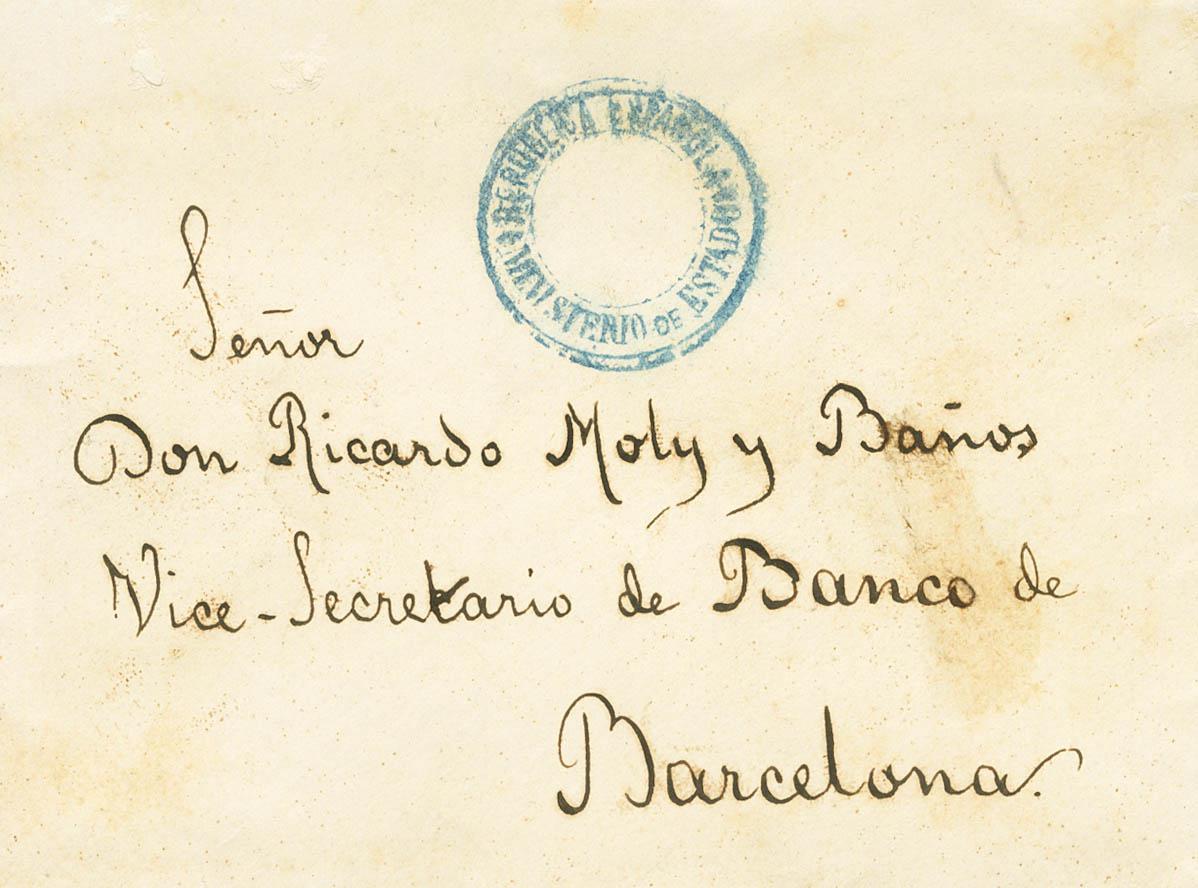 REPUBLICA ESPAÑOLA
MINISTERIO DE ESTADO
Señor
Don Ricardo Moly y Baños
Vice-Secretario de Banco de
Barcelona.